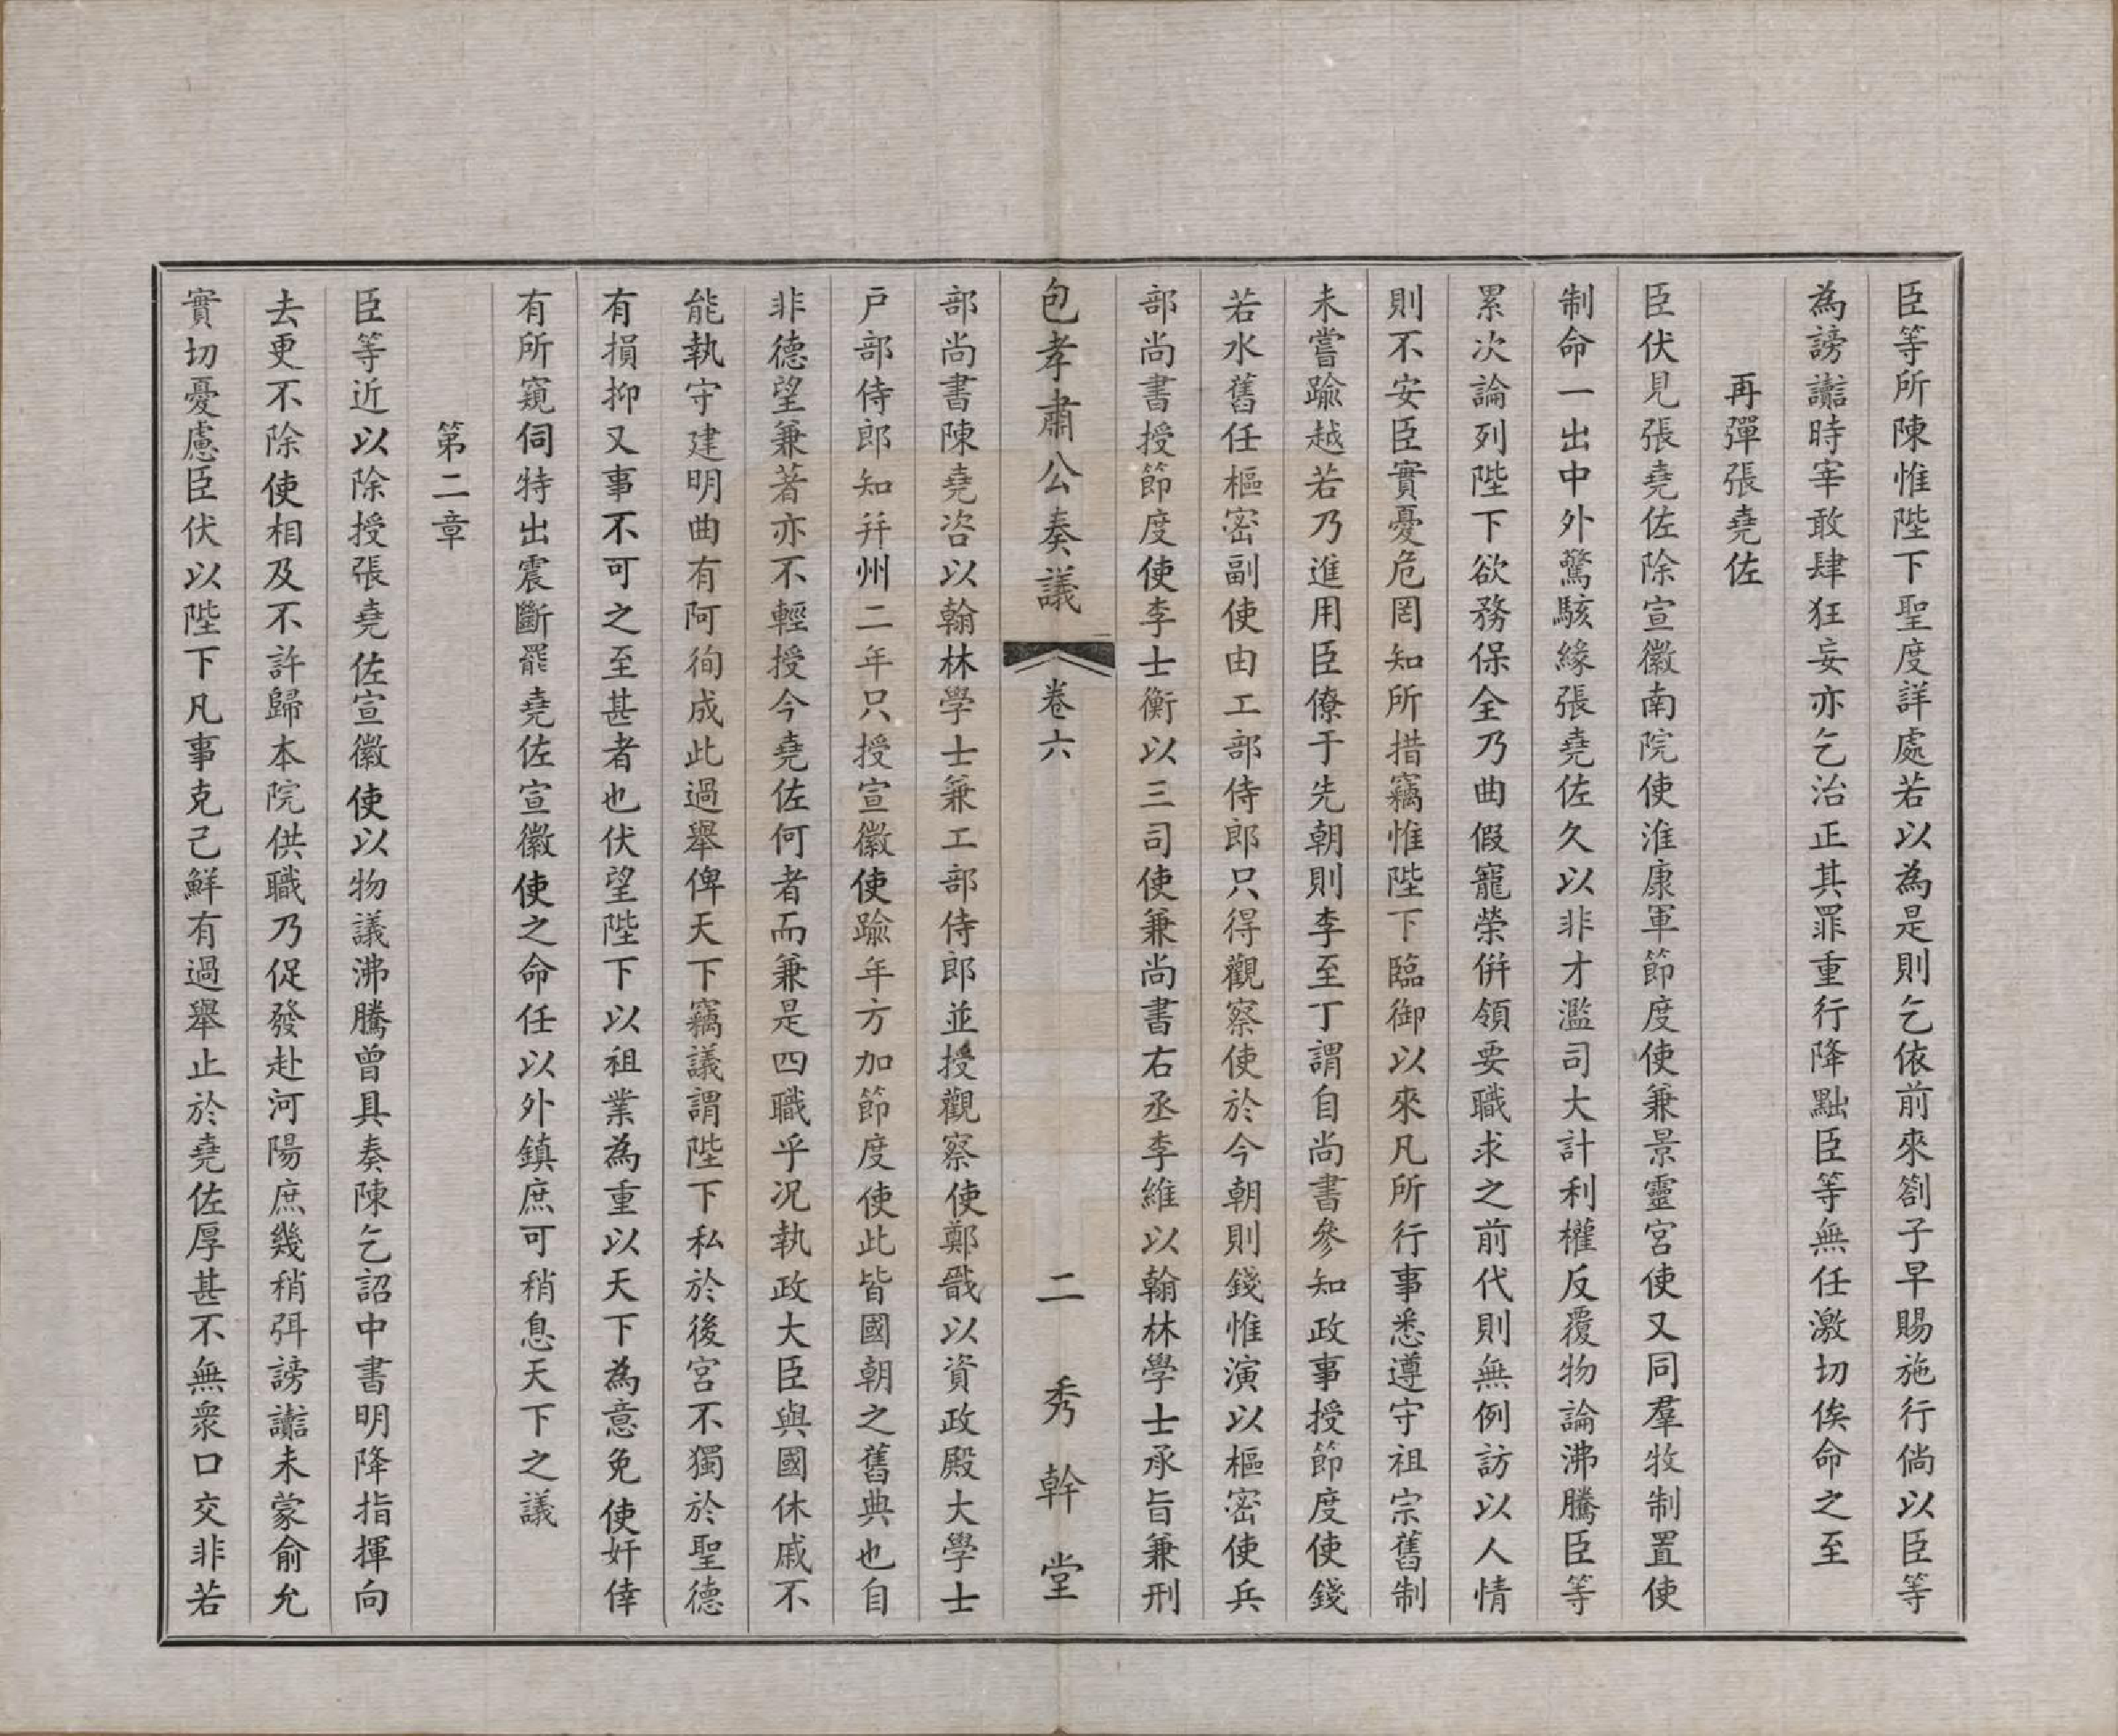 臣等所陳惟陛下聖度詳處若以為是則乞依前來劄子早賜施行倘以臣等
為謗讟時宰敢肆狂妄亦乞治正其罪重行降黜臣等無任激切俟命之至
再彈張堯佐
臣伏見張堯佐除宣徽南院使淮康軍節度使兼景靈宮使又同羣牧制置使
制命一出中外驚駭緣張堯佐久以非才濫司大計利權反覆物論沸騰臣等
累次論列陛下欲務保全乃曲假寵榮併領要職求之前代則無例訪以人情
則不安臣實憂危罔知所措竊惟陛下臨御以來凡所行事悉遵守祖宗舊制
未嘗踰越若乃進用臣僚于先朝則李至丁謂自尚書參知政事授節度使錢
若水舊任樞密副使由工部侍郎只得觀察使於今朝則錢惟演以樞密使兵
部尚書授節度使李士衡以三司使兼尚書右丞李維以翰林學士承旨兼刑
包孝肅公奏議
卷六
二
秀幹堂
部尚書陳堯咨以翰林學士兼工部侍郎並授觀察使鄭戩以資政殿大學士
戶部侍郎知并州二年只授宣徽使踰年方加節度使此皆國朝之舊典也自
非德望兼著亦不輕授今堯佐何者而兼是四職乎况執政大臣與國休戚不
能執守建明曲有阿徇成此過舉俾天下竊議謂陛下私於後宮不獨於聖德
有損抑又事不可之至甚者也伏望陛下以祖業為重以天下為意免使奸倖
有所窺伺特出震斷罷堯佐宣徽使之命任以外鎮庶可稍息天下之議
第二章
臣等近以除授張堯佐宣徽使以物議沸騰曾具奏陳乞詔中書明降指揮向
去更不除使相及不許歸本院供職乃促發赴河陽庶幾稍弭謗讟未蒙俞允
實切憂慮臣伏以陛下凡事克己鮮有過舉止於堯佐厚甚不無衆口交非若